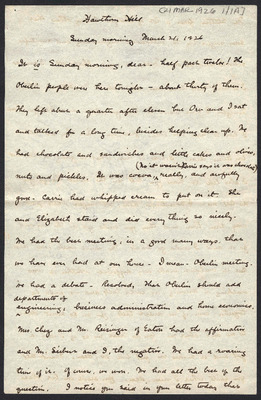 [21 MAR. 1926 1/1A]
Hawthorn Hill
Sunday morning March 21, 1926
It is Sunday morning, dear - half past twelve! The
Oberlin people were here tonight - about thirty of them.
They left about a quarter after eleven but Orv and I sat
and talked for a long time, besides helping clear up. We
had chocolate and sandwiches and little cakes and olives,
(No it wasn't Carrie says it was chocolate)
nuts and pickles. It was cocoa, really, and awfully
good. Carrie had whipped cream to put on it. She
and Elizabeth staid and did every thing so nicely.
We had the best meeting, in a good many ways, that
we have ever had at our house - I mean - Oberlin meeting.
We had a debate - Resolved, That Oberlin should add
departments of
engineering, business administration and home economics.
Mrs. and Mr. Reisinger of Eaton had the affirmative
and Mr. and I, the negative. We had a roaring
time of it. Of course, we won. We had all the best of the
question. I notice you said in your letter today that